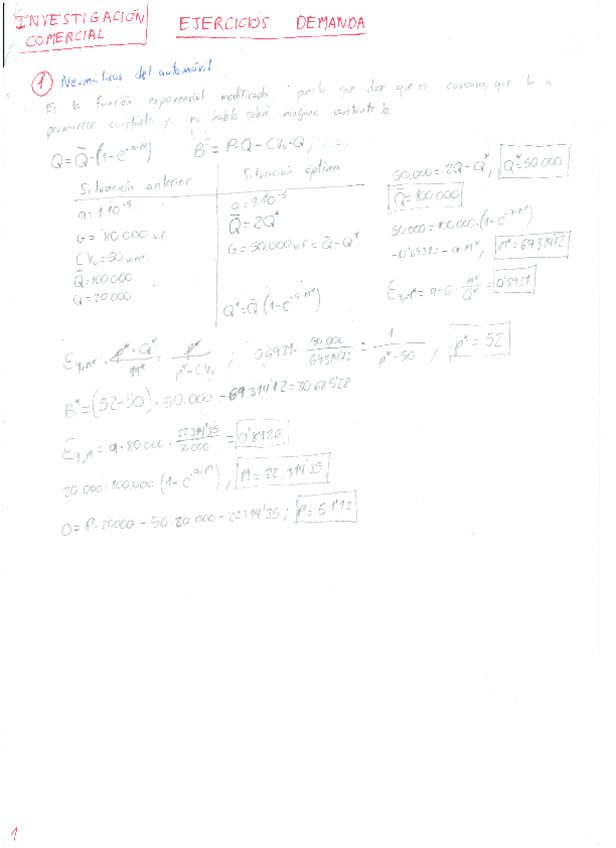 INVESTIGACIÓN
COMERCIAL
EJERCICIOS DEMANDA
1 Neumáticos del automóvil
Es la función exponencial modificada, puesto que dice que es concava, que la a
permanece constante y no habla sobre ninguna constante b.
Q = Q̄·(1-e^(-a·M)) B = P·Q - CVu·Q
Situación anterior
a = 1·10^-5
G = 80000 u.f
CVu = 50 u.m.
Q̄ = 100000
Q = 20000
Situación óptima
a = 1·10^-5
Q̄ = 2Q*
G = 50.000 u.f = Q̄ - Q*
Q* = Q̄ (1-e^(-a·M*))
50.000 = 2Q - Q*, Q* = 50.000
Q̄ = 100.000
50.000 = 100.000·(1-e^(-a·M*))
-0'6931 = -a·M*, M* = 69314'72
Eq,m* = a·G·M*/Q* = 0'6931
Eq,m* · P*·Q*/M* = P*/(P*-CVu) ; 0'6931· 50.000/69314'72 = 1/(P*-50) , P* = 52
B* = (52-50)·50.000 - 69314'72 = 30685'28
Eq,M = a·80000· 22314'35/20000 = 0'8926
20.000 = 100.000 (1-e^(-a·M)) , M = 22.314'35
0 = P·20000 - 50·20.000 - 22314'35 ; P = 51'12
1